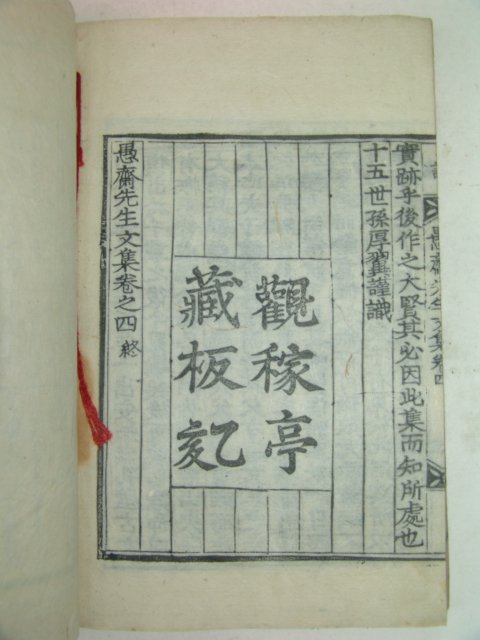 愚齋先生文集卷四
實跡乎後作之大賢其必因此集而知所處也
十五世孫厚翼謹識
觀稼亭
藏板乙亥
愚齋先生文集卷之四 終